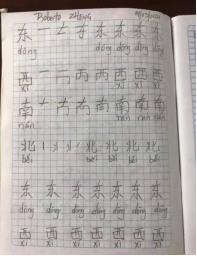 Roberto Zhang
东 一 𠂇 车 东 东 东 东
dōng dōng dōng dōng dōng
西 一 丆 丙 两 西 西 西
xī xī xī xī
南 十 南 南 南 南
nán nán nán nán
北 丨 北 北 北
běi běi běi běi
东 东 东 东 东 东 东
dōng dōng dōng dōng dōng dōng dōng
西 西 西 西 西 西 西
xī xī xī xī xī xī xī